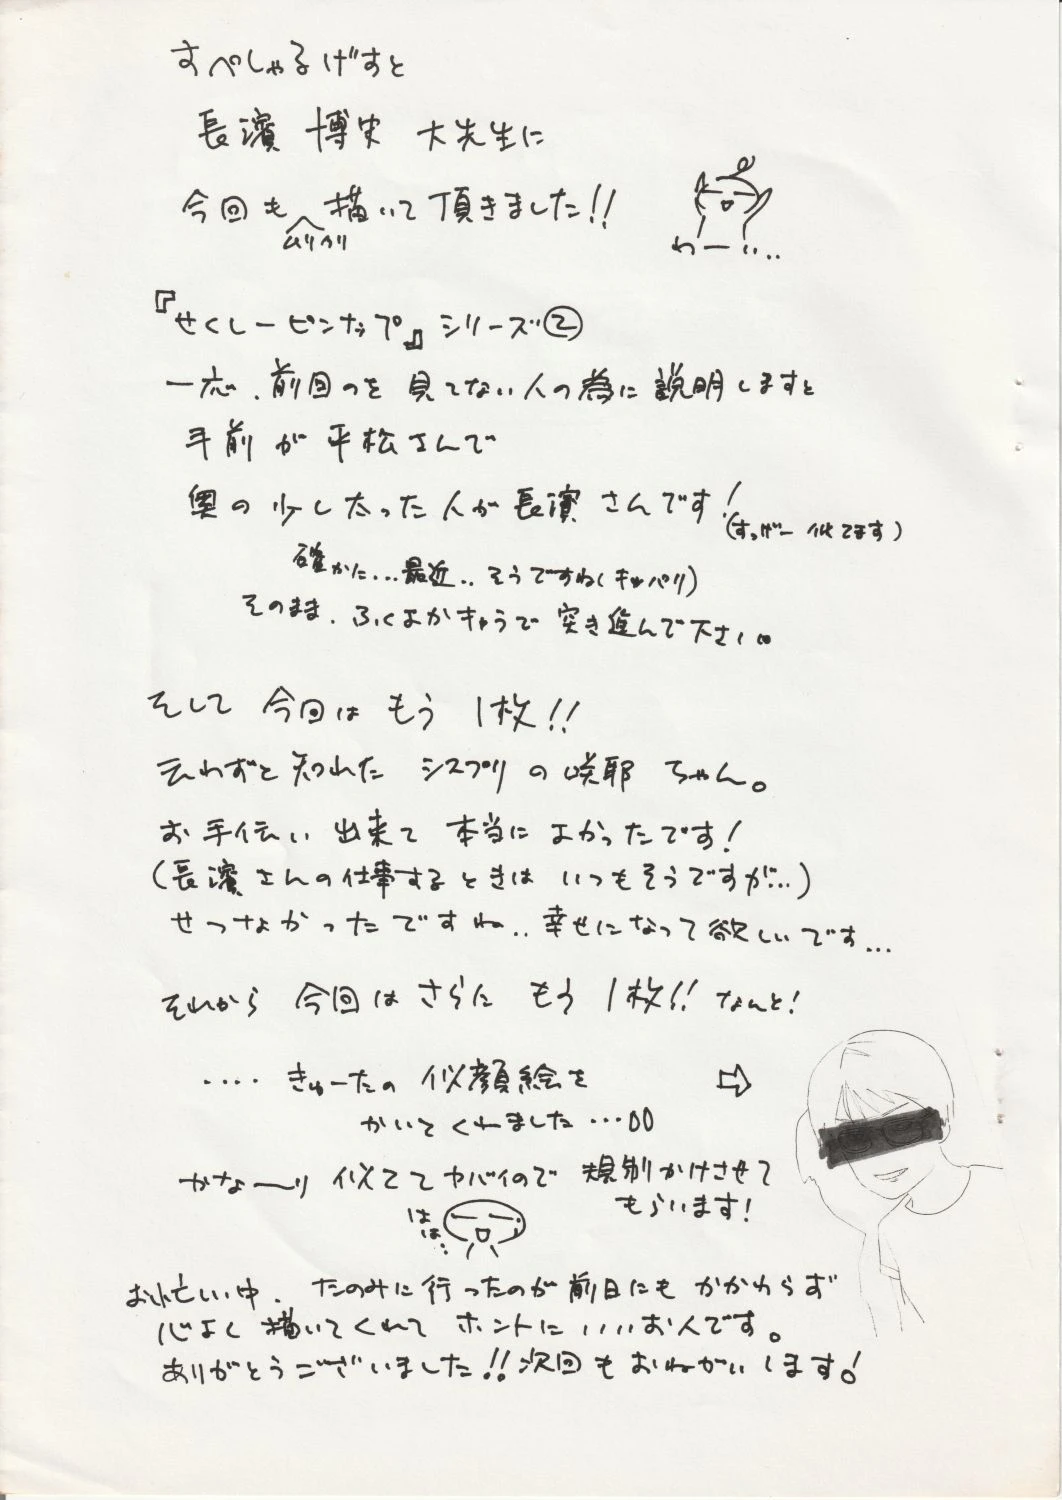 すぺしゃるげすと
長濱 博史 大先生に
今回も 描いて 頂きました!!
ムリヤリ
わーい..
『せくしーピンナップ』シリーズ②
一応、前回のを 見てない人の為に 説明しますと
手前 が 平松さんで
奥の 少し太った人が 長濱 さんです!
(すっげー 似てます)
確かに...最近..そうですね(キッパリ)
そのまま、ふくよかキャラで 突き進んで下さい。
そして 今回は もう 1枚!!
云わずと 知れた シスプリの 咲耶 ちゃん。
お手伝い 出来て 本当に よかったです!
(長濱さんの仕事するときは いつもそうですが...)
せつなかったですね..幸せになって欲しいです...
それから 今回は さらに もう 1枚!! なんと!
.... きゅーたの 似顔絵を ⇨
かいてくれました...00
かな〜り 似てて ヤバイので 規制かけさせて
もらいます!
はは...
お忙しい中、たのみに行ったのが 前日にも かかわらず
心よく 描いてくれて ホントに いいお人です。
ありがとうございました!!次回も おねがいします!